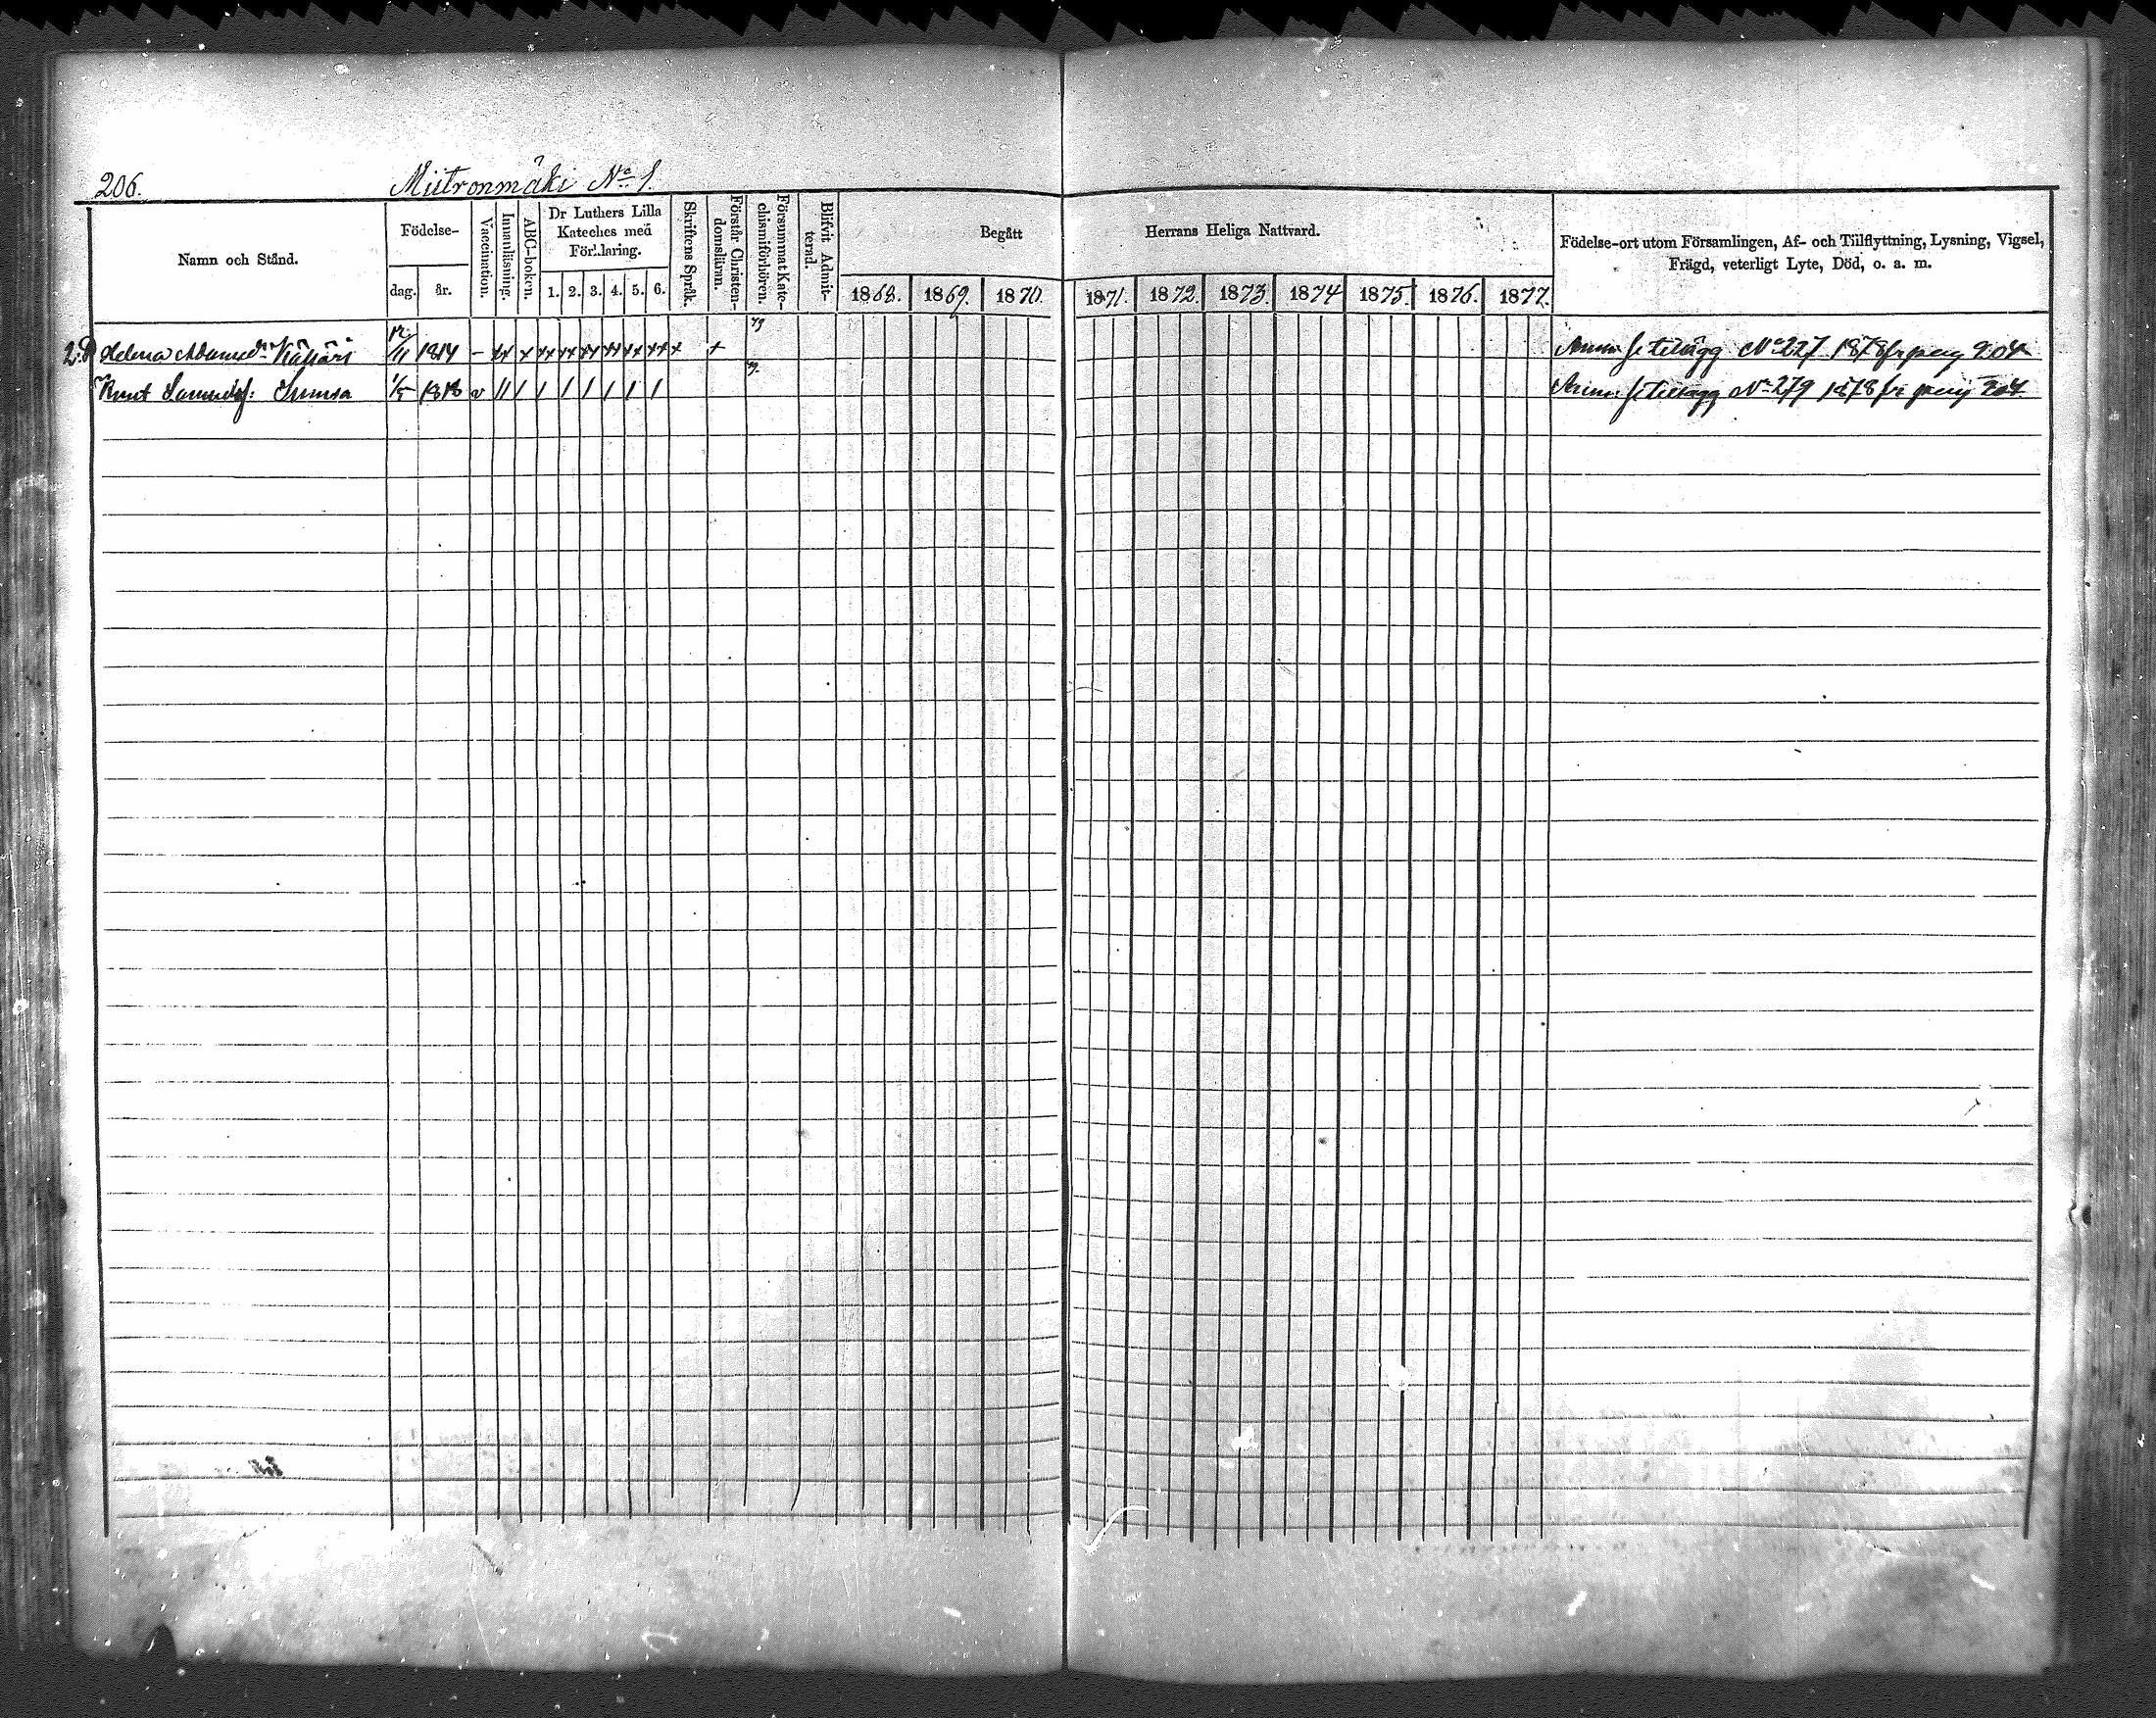 206. Miitronmäki No 1.
Namn och Stånd.
Födelse-
dag. år.
Vaccination.
Innanläsning.
ABC-boken.
Dr Luthers Lilla
Kateches med
Förklaring.
1. 2. 3. 4. 5. 6.
Skriftens Språk.
Förstår Christen-
domsläran.
Försummat Kate-
chismiförhören.
Blifvit Admit-
terad.
Begått Herrans Heliga Nattvard.
1868. 1869. 1870. 1871. 1872. 1873. 1874 1875. 1876. 1877.
Födelse-ort utom Församlingen, Af- och Tillflyttning, Lysning, Vigsel,
Frägd, veterligt Lyte, Död, o. a. m.
Helena 12/11 1814 - + + No 227 1878 fr
Knut 1/5 v No 279 1878 fr